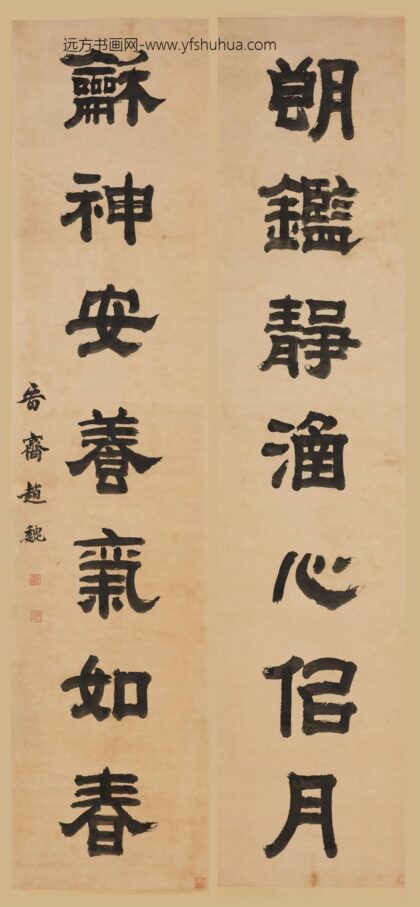 远方书画网-www.yfshuhua.com
朗鑑靜涵心佀月
龢神安養氣如春
晉齋趙魏